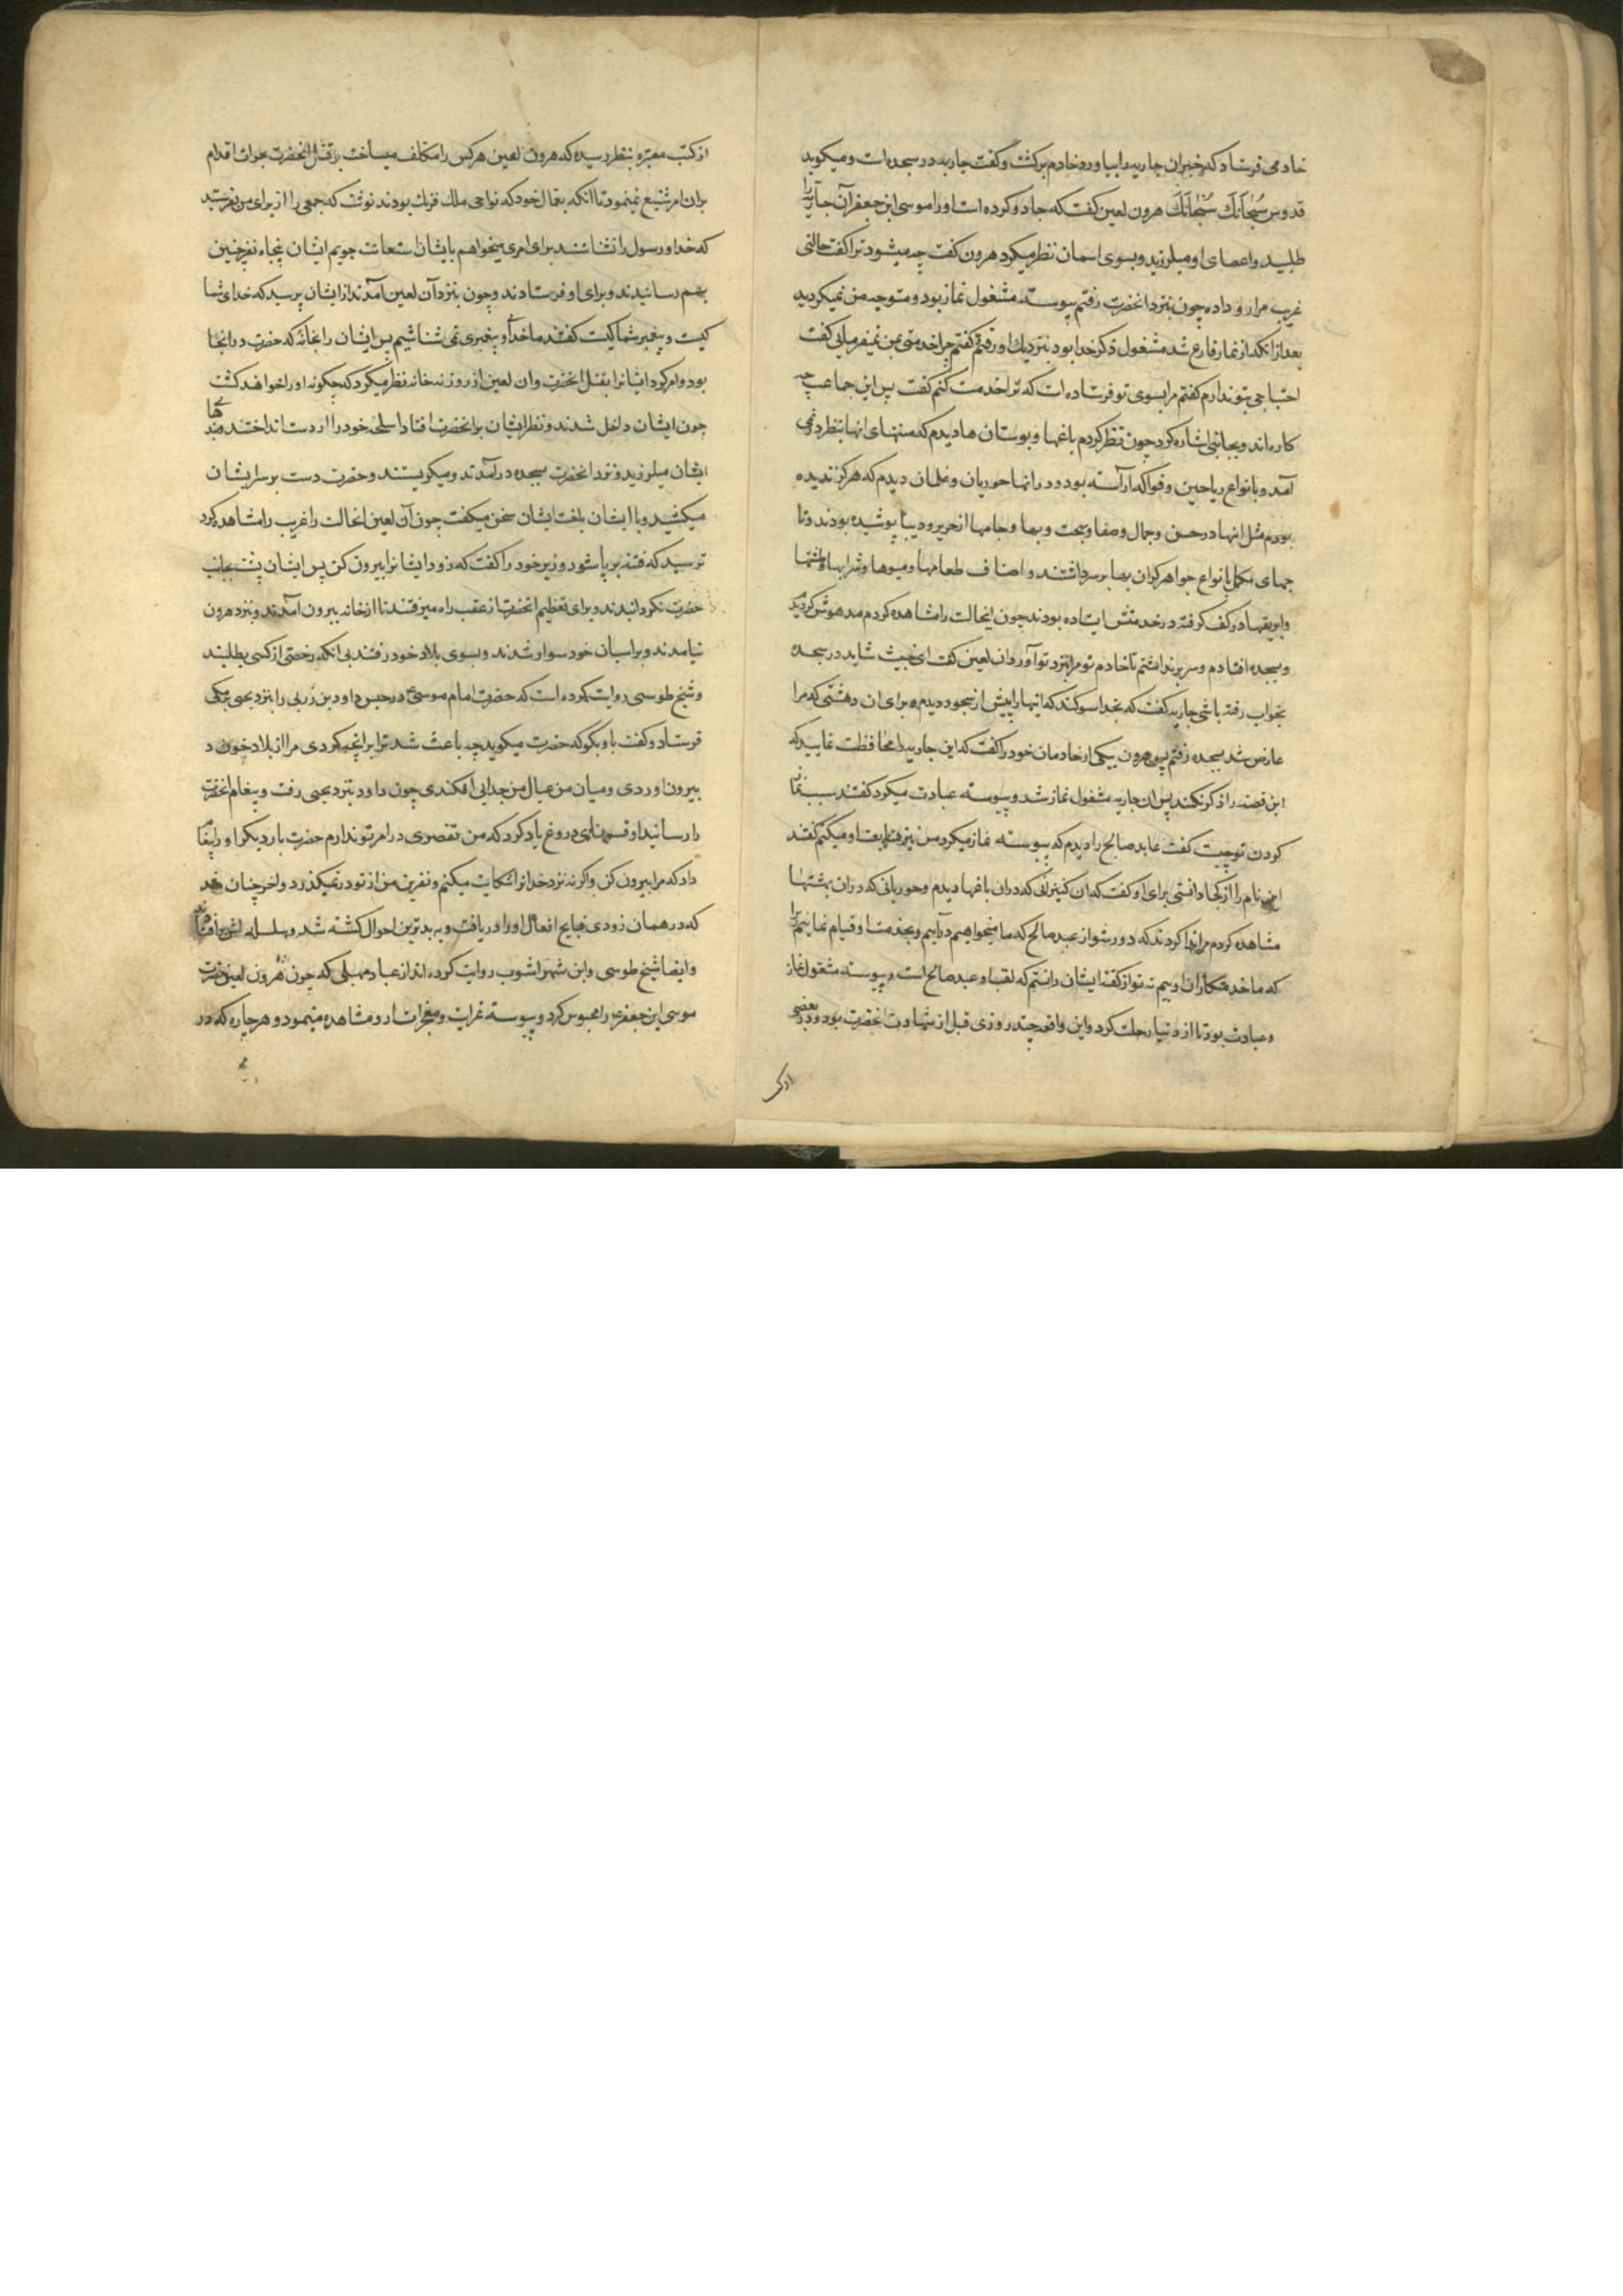 خادمی فرستاد که خبر ان جاریه را بیاورد خادم برکشت و کفت جاریه در سجده است و میکوید
قدوس سُبْحانَكَ سُبْحانَكَ هرون لعین کفت که جادو کرده است او را موسی ابن جعفر آن جاریه را
طلبید و اعضای او میلرزید و بسوی اسمان نظر میکرد هرون کفت چه میشود ترا کفت حالتی
غریب مرا رو داده چون بنزد انحضرت رفتم پیوسته مشغول نماز بود و متوجه من نمیکردید
بعد از انکه از نماز فارغ شد مشغول ذکر خدا بود بنزدیك او رفتم و کفتم چرا خدمتی بمن نمیفرمایی کفت
احتیاجی بتو ندارم کفتم مرا بسوی تو فرستاده است که ترا خدمت کنم کفت پس این جماعت چه
کاره اند و بجانبی اشاره کرد چون نظر کردم باغها و بوستان ها دیدم که منتهای انها بنظر در نمی
آمد و بانواع ریاحین و فواکه آراسته بود و در انها حوریان و غلمان دیدم که هرکز ندیده
بودم مثل انها در حسن و جمال و صفا و بهجت و بها و جامها از حریر و دیبا پوشیده بودند و تا
جهای مکلل بانواع جواهر کران بها بر سر داشتند و اصناف طعامها و میوها و شرابها و طشتها
و ابریقها در کف کرفته در خدمتش ایستاده بودند چون اینحالت را مشاهده کردم مدهوش کردیدم
و بسجده افتادم و سر برنداشتم تا خادم تو مرا بنزد تو آورد ان لعین کفت ای خبیث شاید در سجده
بخواب رفته باشی جاریه کفت که بخدا سوکند که اینها را پیش از سجود دیدم و برای ان دهشتی که مرا
عارض شد بسجده رفتم پس هرون بیکی از خادمان خود را کفت که این جاریه را محافظت نمایید که
این قصه را ذکر نکند پس ان جاریه مشغول نماز شد و پیوسته عبادت میکرد کفتند سبب نماز
کردن تو چیست کفت عابد صالح را دیدم که پیوسته نماز میکرد من نیز متابعت او میکنم کفتند
این نام را از کجا دانستی برای او کفت که ان کنیزانی که دران باغها دیدم و حوریانی که دران بهشتها
مشاهده کردم مرا ندا کردند که دور شو از عبد صالح که ما میخواهیم درآییم و بخدمت او قیام نماییم زیرا
که ما خدمتکاران اوییم نه تو از کفته ایشان دانستم که لقب او عبد صالح است و پیوسته مشغول نماز
و عبادت بود تا از دنیا رحلت کرد و این واقعه چند روزی قبل از شهادت انحضرت بود و در بعضی
از کتب
از کتب معتبره بنظر رسیده که هرون لعین هرکس را مکلف میساخت بر قتل انحضرت جرات اقدام
بران امر شنیع نمینمود تا انکه بعمال خود که نواحی ملك فرنك بودند نوشت که جمعی را از برای من بفرستید
که خدا و رسول را نشناسند برای امری میخواهم بایشان استعانت جویم ایشان پنجاه نفر چنین
بهم رسانیدند و برای او فرستادند و چون بنزد آن لعین آمدند از ایشان پرسید که خدای شما
کیست و پیغمبر شما کیست کفتند ما خدا و پیغمبری نمی شناسیم پس ایشان را بخانه که حضرت در انجا
بود و امر کرد ایشانرا بقتل انحضرت و ان لعین از روزنه خانه نظر میکرد که چکونه او را خواهند کشت
چون ایشان داخل شدند و نظر ایشان بر انحضرت افتاد اسلحه خود را از دست انداختند و بند های
ایشان میلرزید و نزد انحضرت بسجده درآمدند و میکریستند و حضرت دست بر سر ایشان
میکشید و با ایشان بلغت ایشان سخن میکفت چون آن لعین انحالت را غریب را مشاهده کرد
ترسید که فتنه برپا شود وزیر خود را کفت که زود ایشانرا بیرون کن پس ایشان پشت بجانب
حضرت نکردانیدند و برای تعظیم انحضرت از عقب راه میرفتند تا از خانه بیرون آمدند و بنزد هرون
نیامدند و بر اسبان خود سوار شدند و بسوی بلاد خود رفتند بی انکه رخصتی از کسی بطلبند
و شیخ طوسی روایت کرده است که حضرت امام موسی ع در حبس داود بن زربی را بنزد یحیی برمکی
فرستاد و کفت باو بکو که حضرت میکوید چه باعث شد ترا بر انچه کردی مرا از بلاد خود
بیرون اوردی و میان من و عیال من جدایی افکندی چون داود بنزد یحیی رفت و پیغام انحضرت
را رسانید او قسمهای دروغ یاد کرد که من تقصیری در امر تو ندارم حضرت بار دیکر او را پیغام
داد که مرا بیرون کن و اکر نه نزد خدا ترا شکایت میکنم و نفرین من از تو در نمیکذرد و اخر چنان شد
که در همان زودی قبایح افعال او را دریافت و به بدترین احوال کشته شد و سلسله اش برافتاد
و ایضا شیخ طوسی و ابن شهر اشوب روایت کرده اند از عباد مهلبی که چون هرون لعین حضرت
موسی ابن جعفر ع را محبوس کرد و پیوسته غرایب و معجزات ازو مشاهده مینمود و هر چاره که در